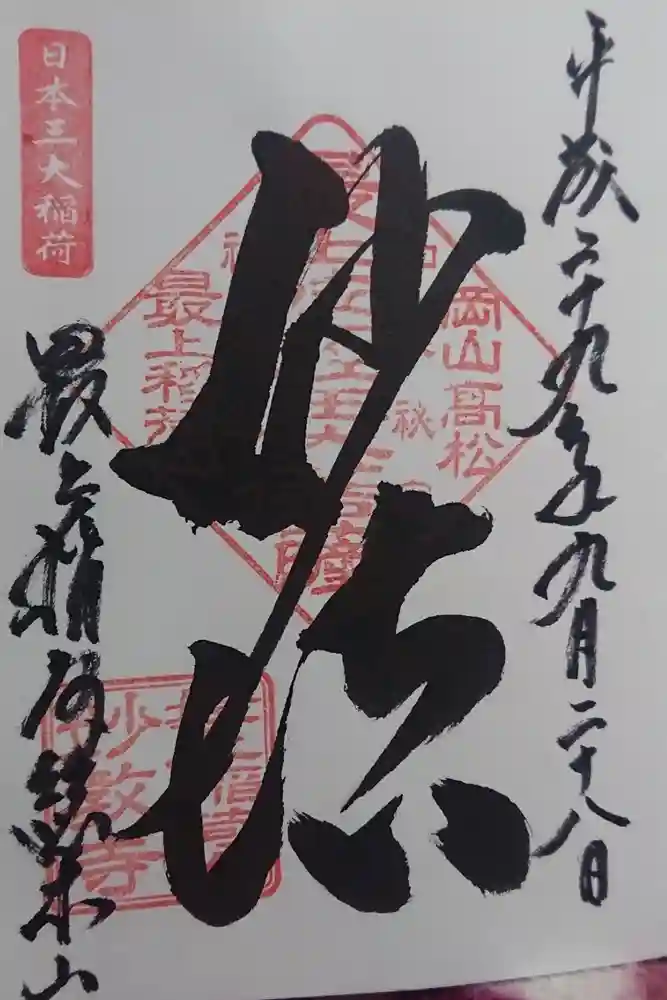 平成二十九年九月二十八日
岡山高松
妙法
最上稲荷
日本三大稲荷
最上稲荷総本山
妙教寺